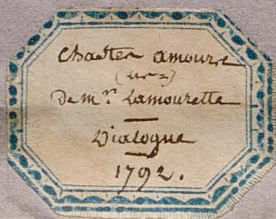 Chastes amours
De mr. Lamourette
Dialogue
1792.